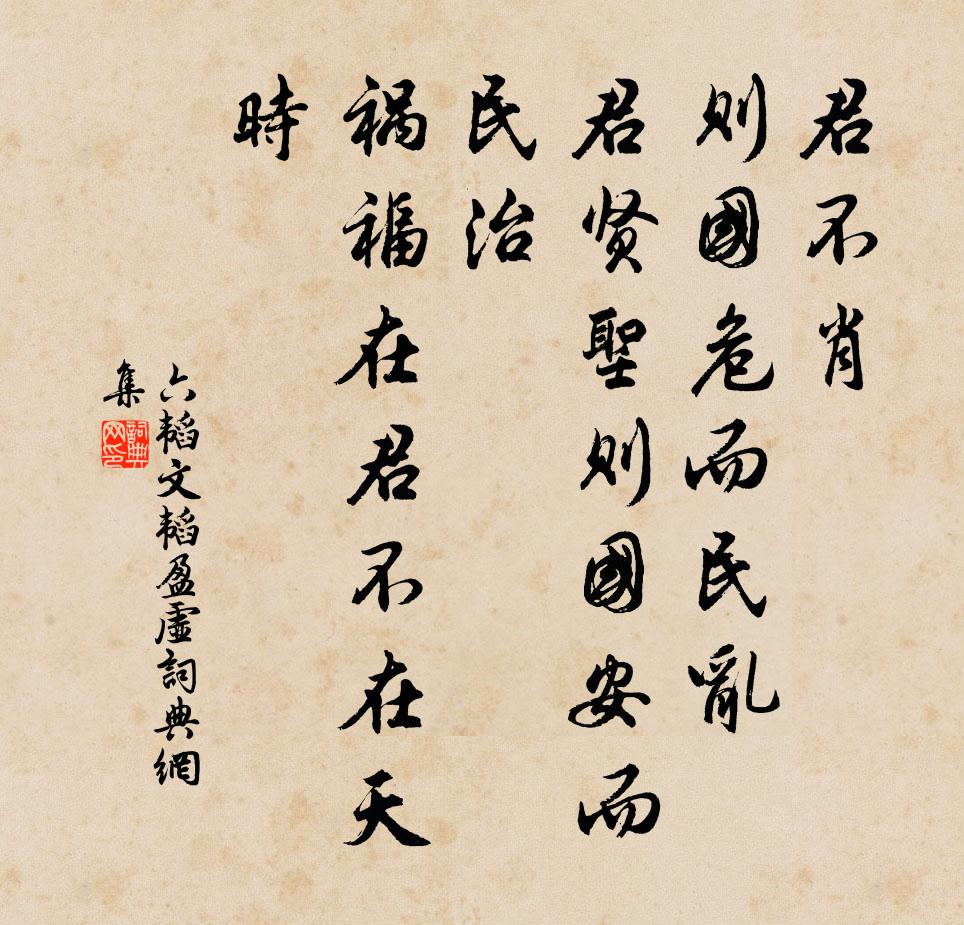 君不肖
則國危而民亂
君贤聖則國安而
民治
祸福在君不在天
時
六韬文韬盈虛詞典網
集
詞典
网印